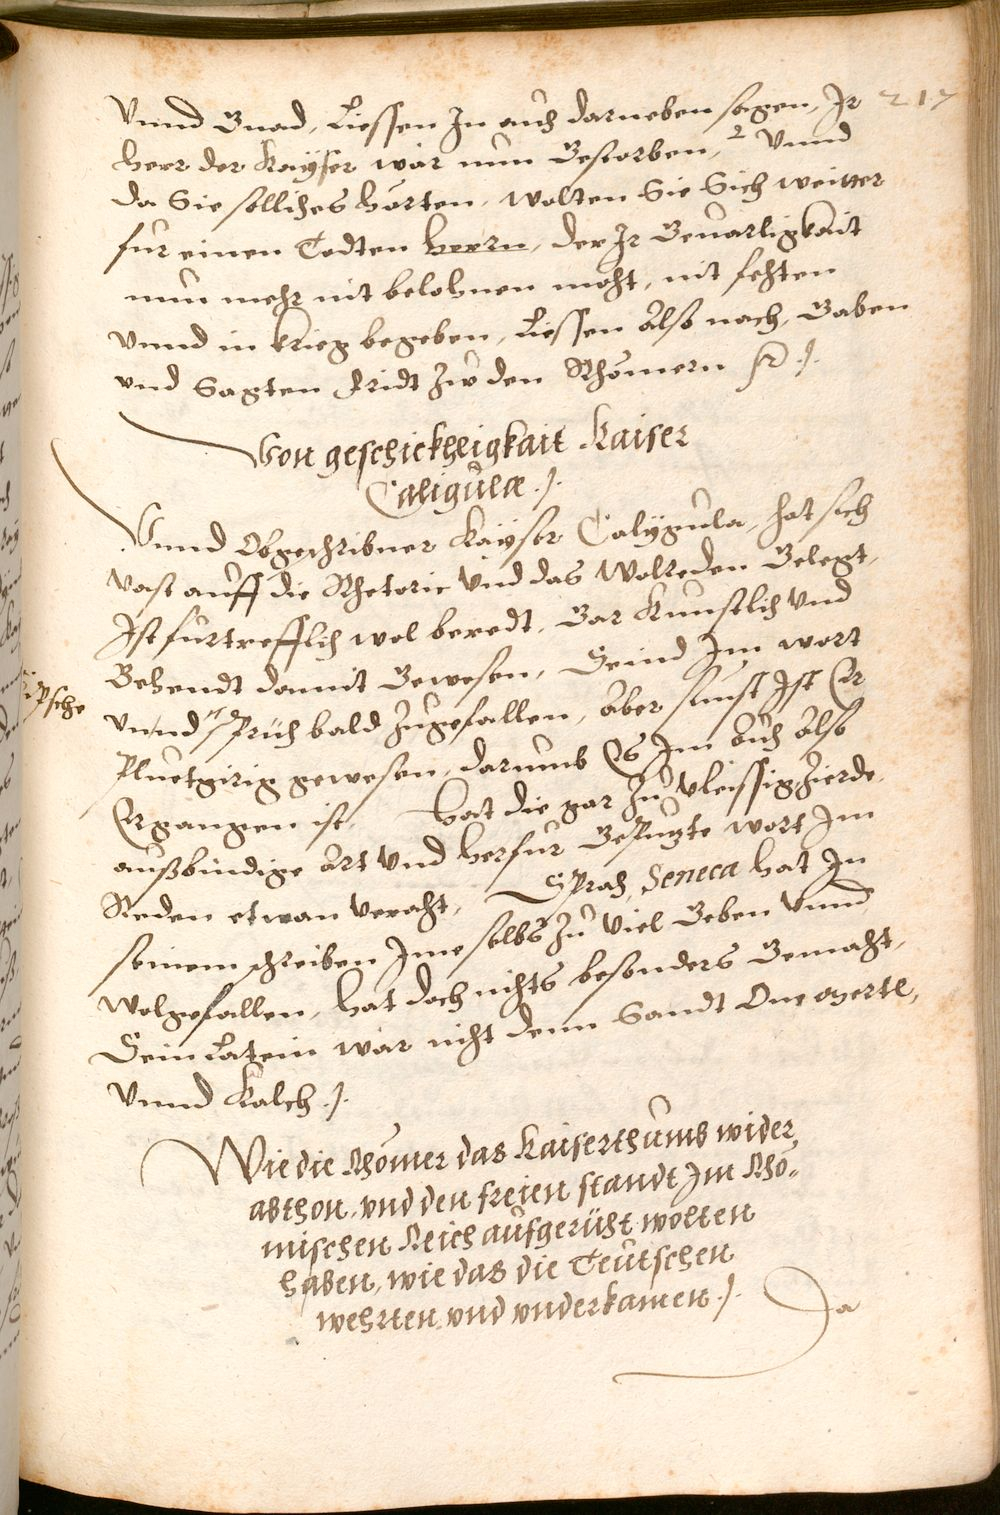 217
Vnnd Gnad, Liessen In auch darneben sagen, Ir
herr der Kayser wär nun Gestorben, 2 Vnnd
da Sie solliches hörten, wolten Sie Sich weitter
fur einen Todten herrn, der Ir Geuarligkait
nun mehr nit belohnen moht, nit fehten
Vnnd in krieg begeben, Liessen also nach, Gaben
vnd Sagten fridt zw den Rhömern
Von geschickhligkait Kaiser
Caligulæ .
Vnnd Obgeschribner Kayser Calygula, hat sich
vast auff die Rhetoric vnd das Wolreden Gelegt,
Ist furtrefflich wol beredt, Gar Kunstlich vnd
Behendt damit Gewesen, Seind Im wort
vnnd sprüch bald zugefallen, aber sunst Ist Er
pluetgirig gewesen, darumb Es Im auch also
Ergangen ist. Hat die gar zu vleissig zierde,
außbindige art vnd herfur Geputzte wort Im
Reden etwan veracht, Sprach, Seneca hat In
seinem schreiben Ime selbs zu viel Geben vnnd
wolgefallen, hat doch nichts besonders Gemacht,
Sein Latein wär nicht denn Sandt One mertl,
vnnd Kalch .
Wie die Rhömer das Kaiserthumb wider
abthon, vnd den freien standt Im Rhö-
mischen Reich aufgerücht wolten
haben, wie das die Teutschen
wehrten vnd vnderkamen .
Da